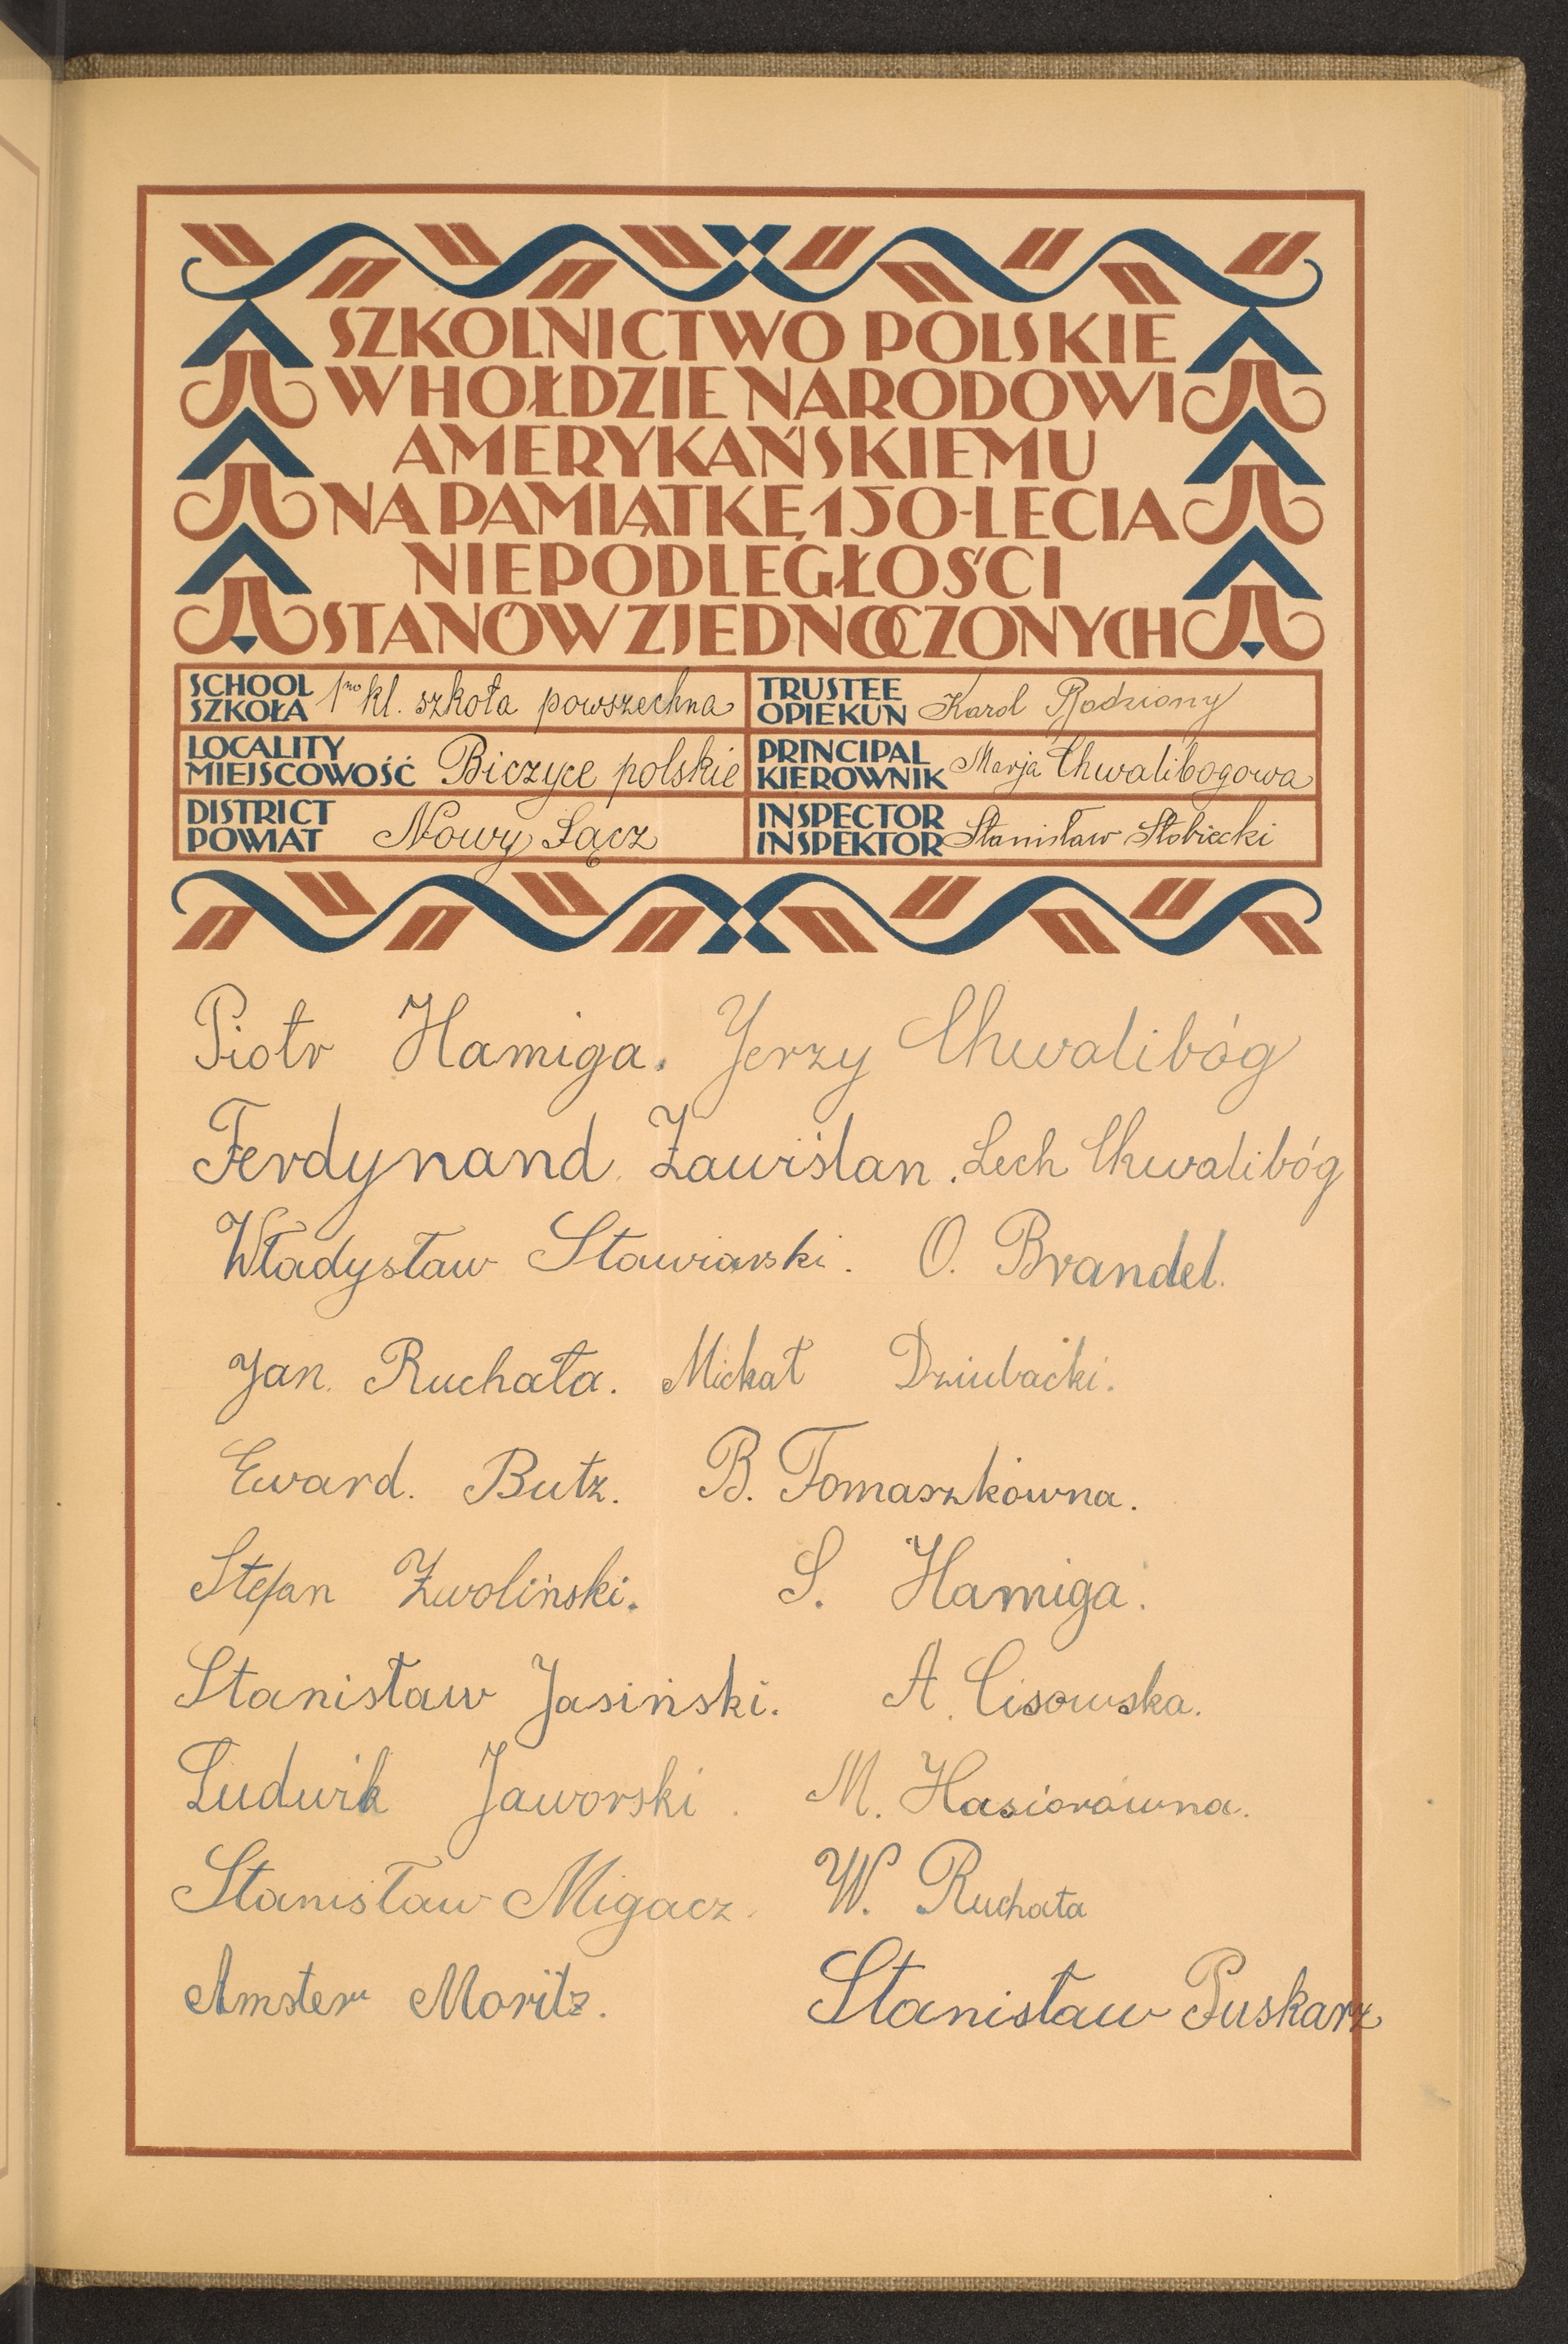 SZKOLNICTWO POLSKIE
W HOŁDZIE NARODOWI
AMERYKAŃSKIEMU
NA PAMIĄTKĘ 150-LECIA
NIEPODLEGŁOŚCI
STANÓW ZJEDNOCZONYCH
SCHOOL
SZKOŁA 1no kl. szkoła powszechna
TRUSTEE
OPIEKUN Karol Rodziony
LOCALITY
MIEJSCOWOŚĆ Biczyce polskie
PRINCIPAL
KIEROWNIK Marja Chwalibogowa
DISTRICT
POWIAT Nowy Sącz
INSPECTOR
INSPEKTOR Stanisław Słobiecki
Piotr Hamiga. Jerzy Chwalibóg
Ferdynand Zawiślan. Lech Chwalibóg
Władysław Stawiarski. O. Brandel.
Jan. Ruchała. Michał Dziubacki.
Eward. Butz. B. Tomaszkówna.
Stefan Zwoliński. S. Hamiga.
Stanisław Jasiński. A. Cisowska.
Ludwik Jaworski. M. Hasiorówna.
Stanisław Migacz. W. Ruchała
Amster Moritz. Stanisław Puskarz